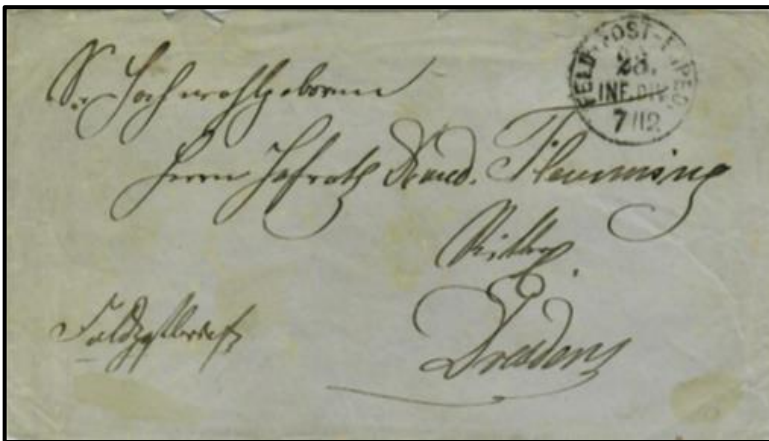 FELD-POST-EXPED
23.
INF.DIV.
7/12
Sr Hochwohlgeboren
Herrn Hofrath Dr med. Flemming
Dresden
Feldpostbrief